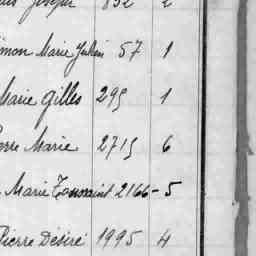 Joseph 852 2
Simon Marie Julien 57 1
Marie Gilles 295 1
Pierre Marie 2715 6
Marie Toussaint 2166 - 5
Pierre Désiré 1995 4